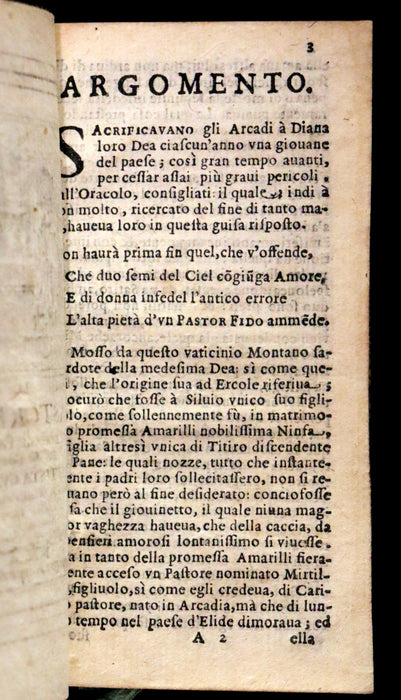 3
ARGOMENTO.
SACRIFICAVANO gli Arcadi à Diana
loro Dea ciascun'anno vna giouane
del paese; così gran tempo auanti,
per cessar assai più graui pericoli
all'Oracolo, consigliati: il quale, indi à
on molto, ricercato del fine di tanto ma-
,haueua loro in questa guisa risposto.
on haurà prima fin quel, che v'offende,
Che duo semi del Ciel cōgiūga Amore,
E di donna infedel l'antico errore
L'alta pietà d'vn PASTOR FIDO ammēde.
Mosso da questo vaticinio Montano sa-
rdote della medesima Dea: sì come que-
i, che l'origine sua ad Ercole riferiua;
ocurò che fosse à Siluio vnico suo figli-
lo, come sollennemente fù, in matrimo-
o promessa Amarilli nobilissima Ninfa,
iglia altresì vnica di Titiro discendente
Pane: le quali nozze, tutto che instante-
ente i padri loro sollecitassero, non si re-
uano però al fine desiderato: conciofosse
sa che il giouinetto, il quale niuna mag-
or vaghezza haueua, che della caccia, da
ensieri amorosi lontanissimo si viuesse.
a in tanto della promessa Amarilli fiera-
ente acceso vn Pastore nominato Mirtil-
,figliuolo, sì come egli credeua, di Cari-
o pastore, nato in Arcadia, mà che di lun-
o tempo nel paese d'Elide dimoraua; ed
A 2 ella